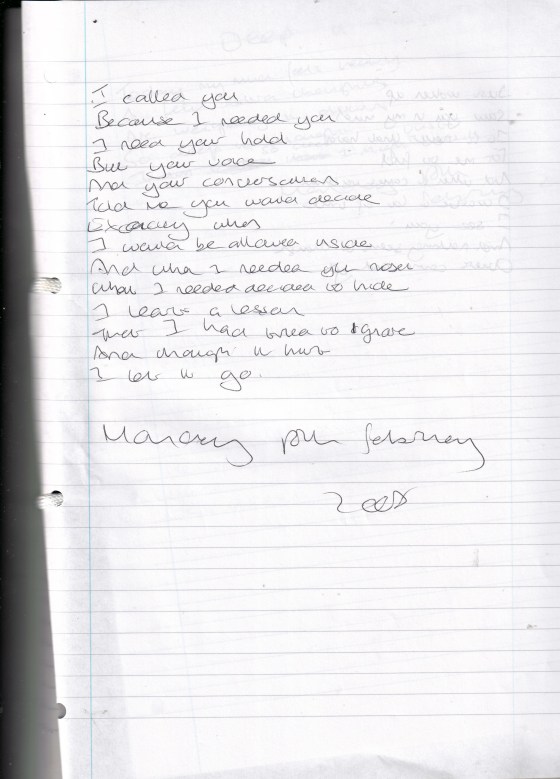 I called you
Because I needed you
I need your hold
But your voice
And your conversation
Told me you would decide
Exactly when
I would be allowed inside
And when I needed you most
What I needed decided to hide
I learnt a lesson
That I had tried to ignore
And though it hurt
I let it go.
Monday February
2008